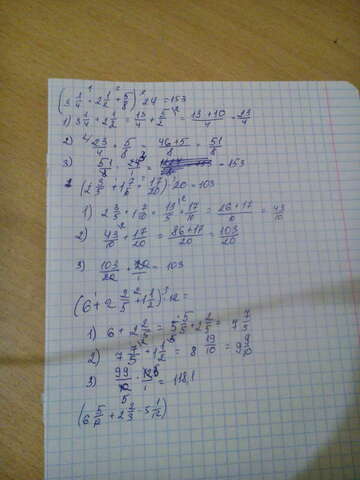 (3 1/4 + 2 1/2 + 5/8) · 24 = 153
1) 3 1/4 + 2 1/2 = 13/4 + 5/2 = 13+10/4 = 23/4
2) 23/4 + 5/8 = 46+5/8 = 51/8
3) 51/8 · 24/1 = 153
(2 3/5 + 1 7/10 + 17/20) · 20 = 103
1) 2 3/5 + 1 7/10 = 13/5 + 17/10 = 26+17/10 = 43/10
2) 43/10 + 17/20 = 86+17/20 = 103/20
3) 103/20 · 20/1 = 103
(6 + 2 2/5 + 1 1/2) · 12 =
1) 6 + 2 2/5 = 5 5/5 + 2 2/5 = 7 7/5
2) 7 7/5 + 1 1/2 = 8 19/10 = 9 9/10
3) 99/10 · 12/1 = 118,